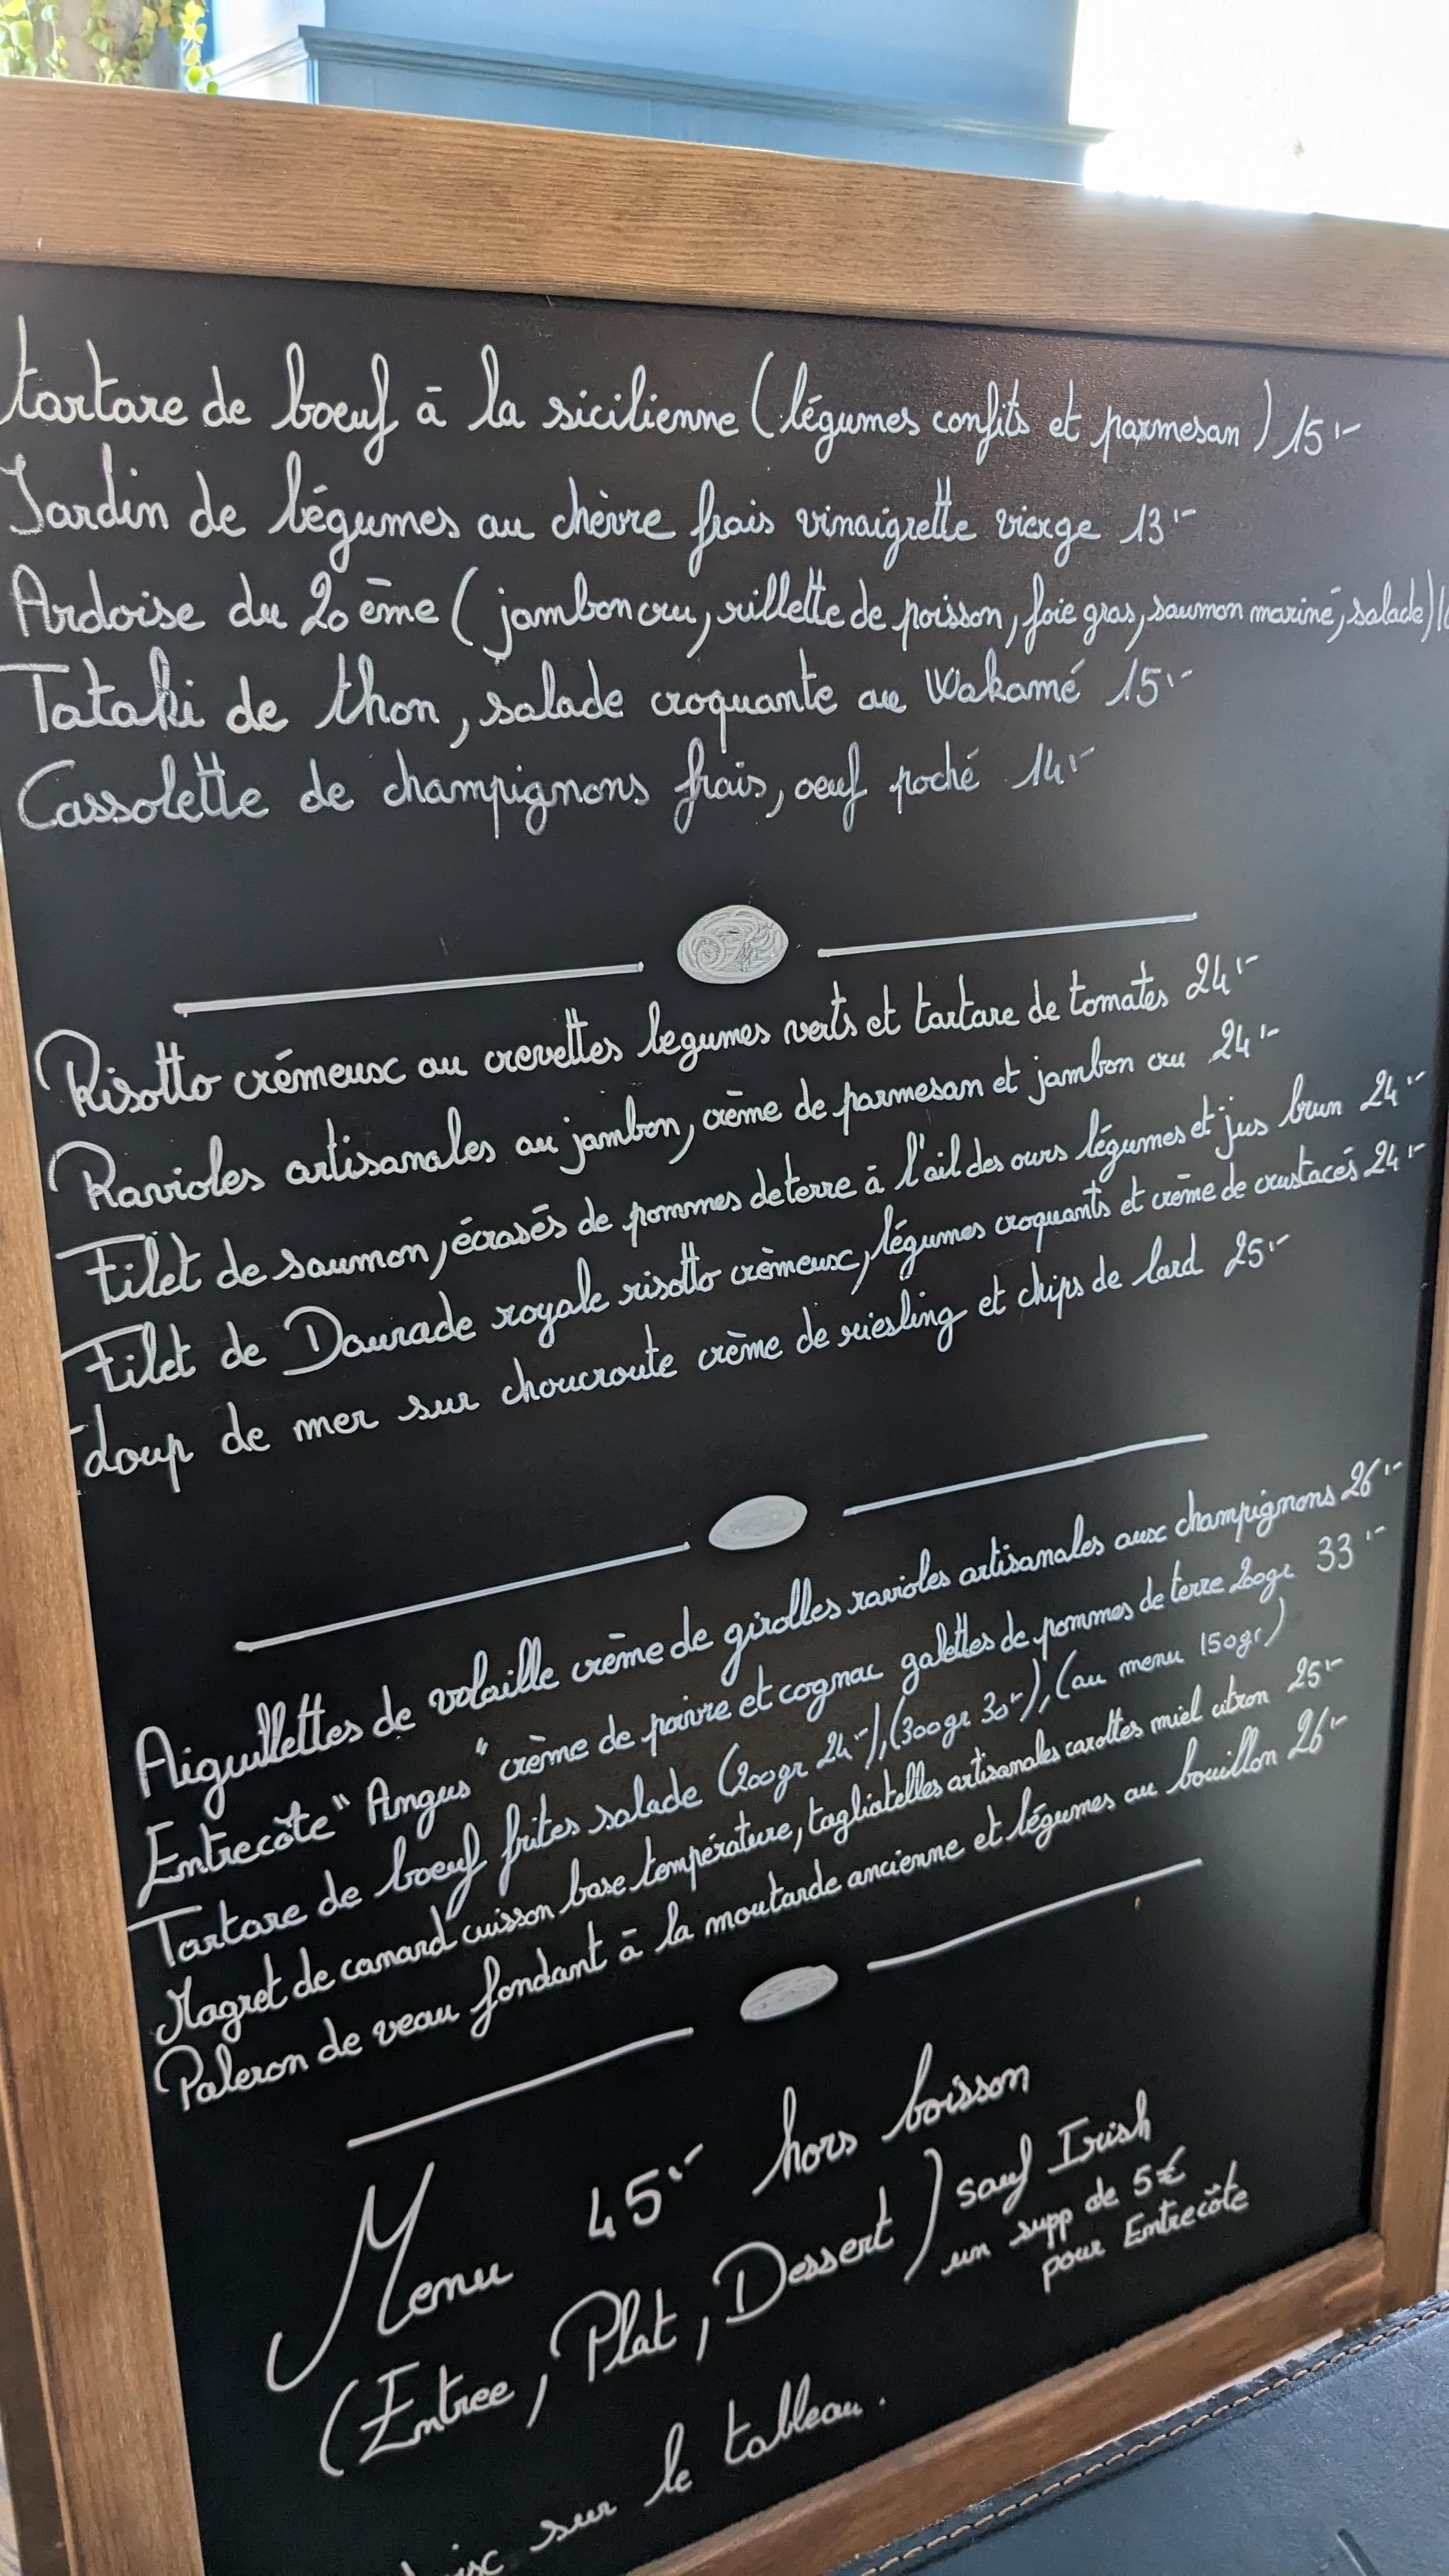 tartare de boeuf à la sicilienne (légumes confits et parmesan) 15.-
Jardin de légumes au chèvre frais vinaigrette vierge 13.-
Ardoise du 20 ème (jambon cru, rillette de poisson, foie gras, saumon mariné, salade)
Tataki de thon, salade croquante au Wakamé 15.-
Cassolette de champignons frais, oeuf poché 14.-
Risotto crémeux au crevettes legumes verts et tartare de tomates 24.-
Ravioles artisanales au jambon, crème de parmesan et jambon cru 24.-
Filet de saumon, écrasés de pommes de terre à l'ail des ours légumes et jus brun 24.-
Filet de Daurade royale risotto crèmeux, légumes croquants et crème de crustacés 24.-
Loup de mer sur choucroute crème de riesling et chips de lard 25.-
Aiguillettes de volaille crème de girolles ravioles artisanales aux champignons 26.-
Entrecôte "Angus" crème de poivre et cognac galettes de pommes de terre 200gr 33.-
Tartare de boeuf frites salade (200gr 24.-), (300gr 30.-), (au menu 150gr)
Magret de canard cuisson base température, tagliatelles artisanales carottes miel citron 25.-
Paleron de veau fondant à la moutarde ancienne et légumes au bouillon 26.-
Menu 45.- hors boisson
(Entree, Plat, Dessert) sauf Irish
un supp de 5€
pour Entrecôte
sur le tableau.